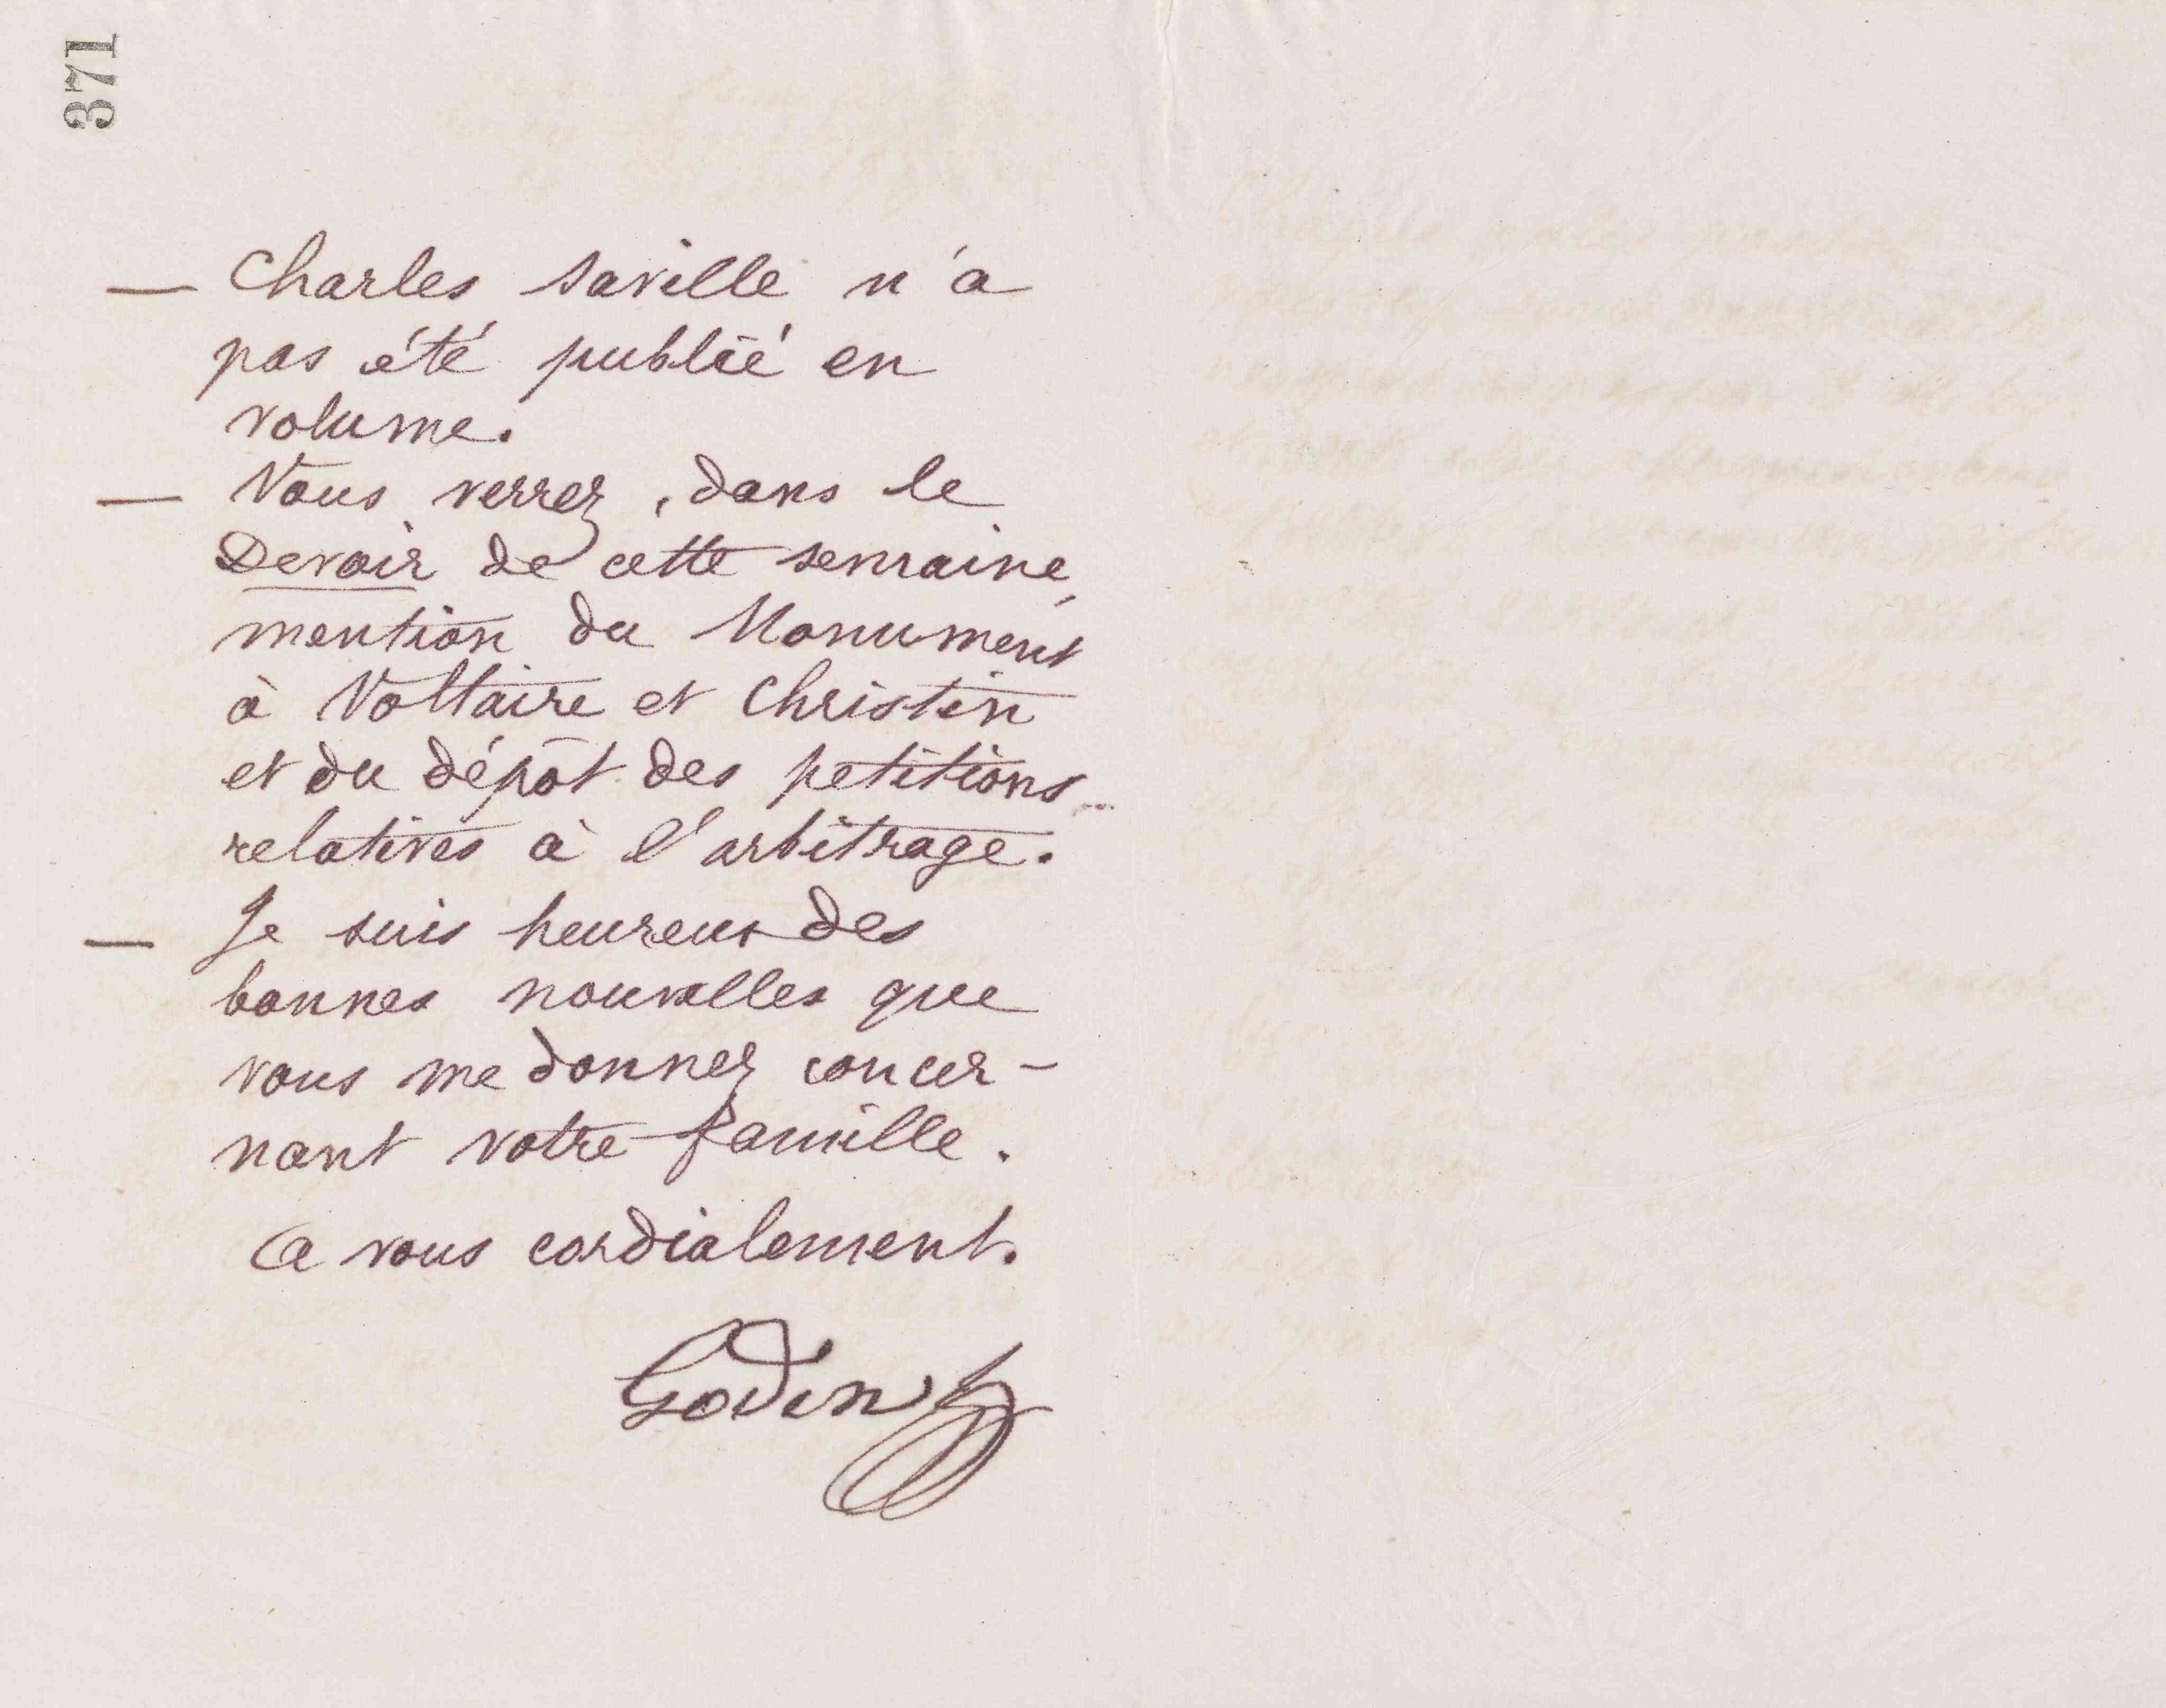 371
— Charles Saville n'a
pas été publié en
volume.
— Vous verrez, dans le
Devoir de cette semaine,
mention du Monument
à Voltaire et Christin
et du dépôt des petitions
relatives à l'arbitrage.
— Je suis heureux des
bonnes nouvelles que
vous me donnez concer-
nant votre famille.
A vous cordialement.
Godin